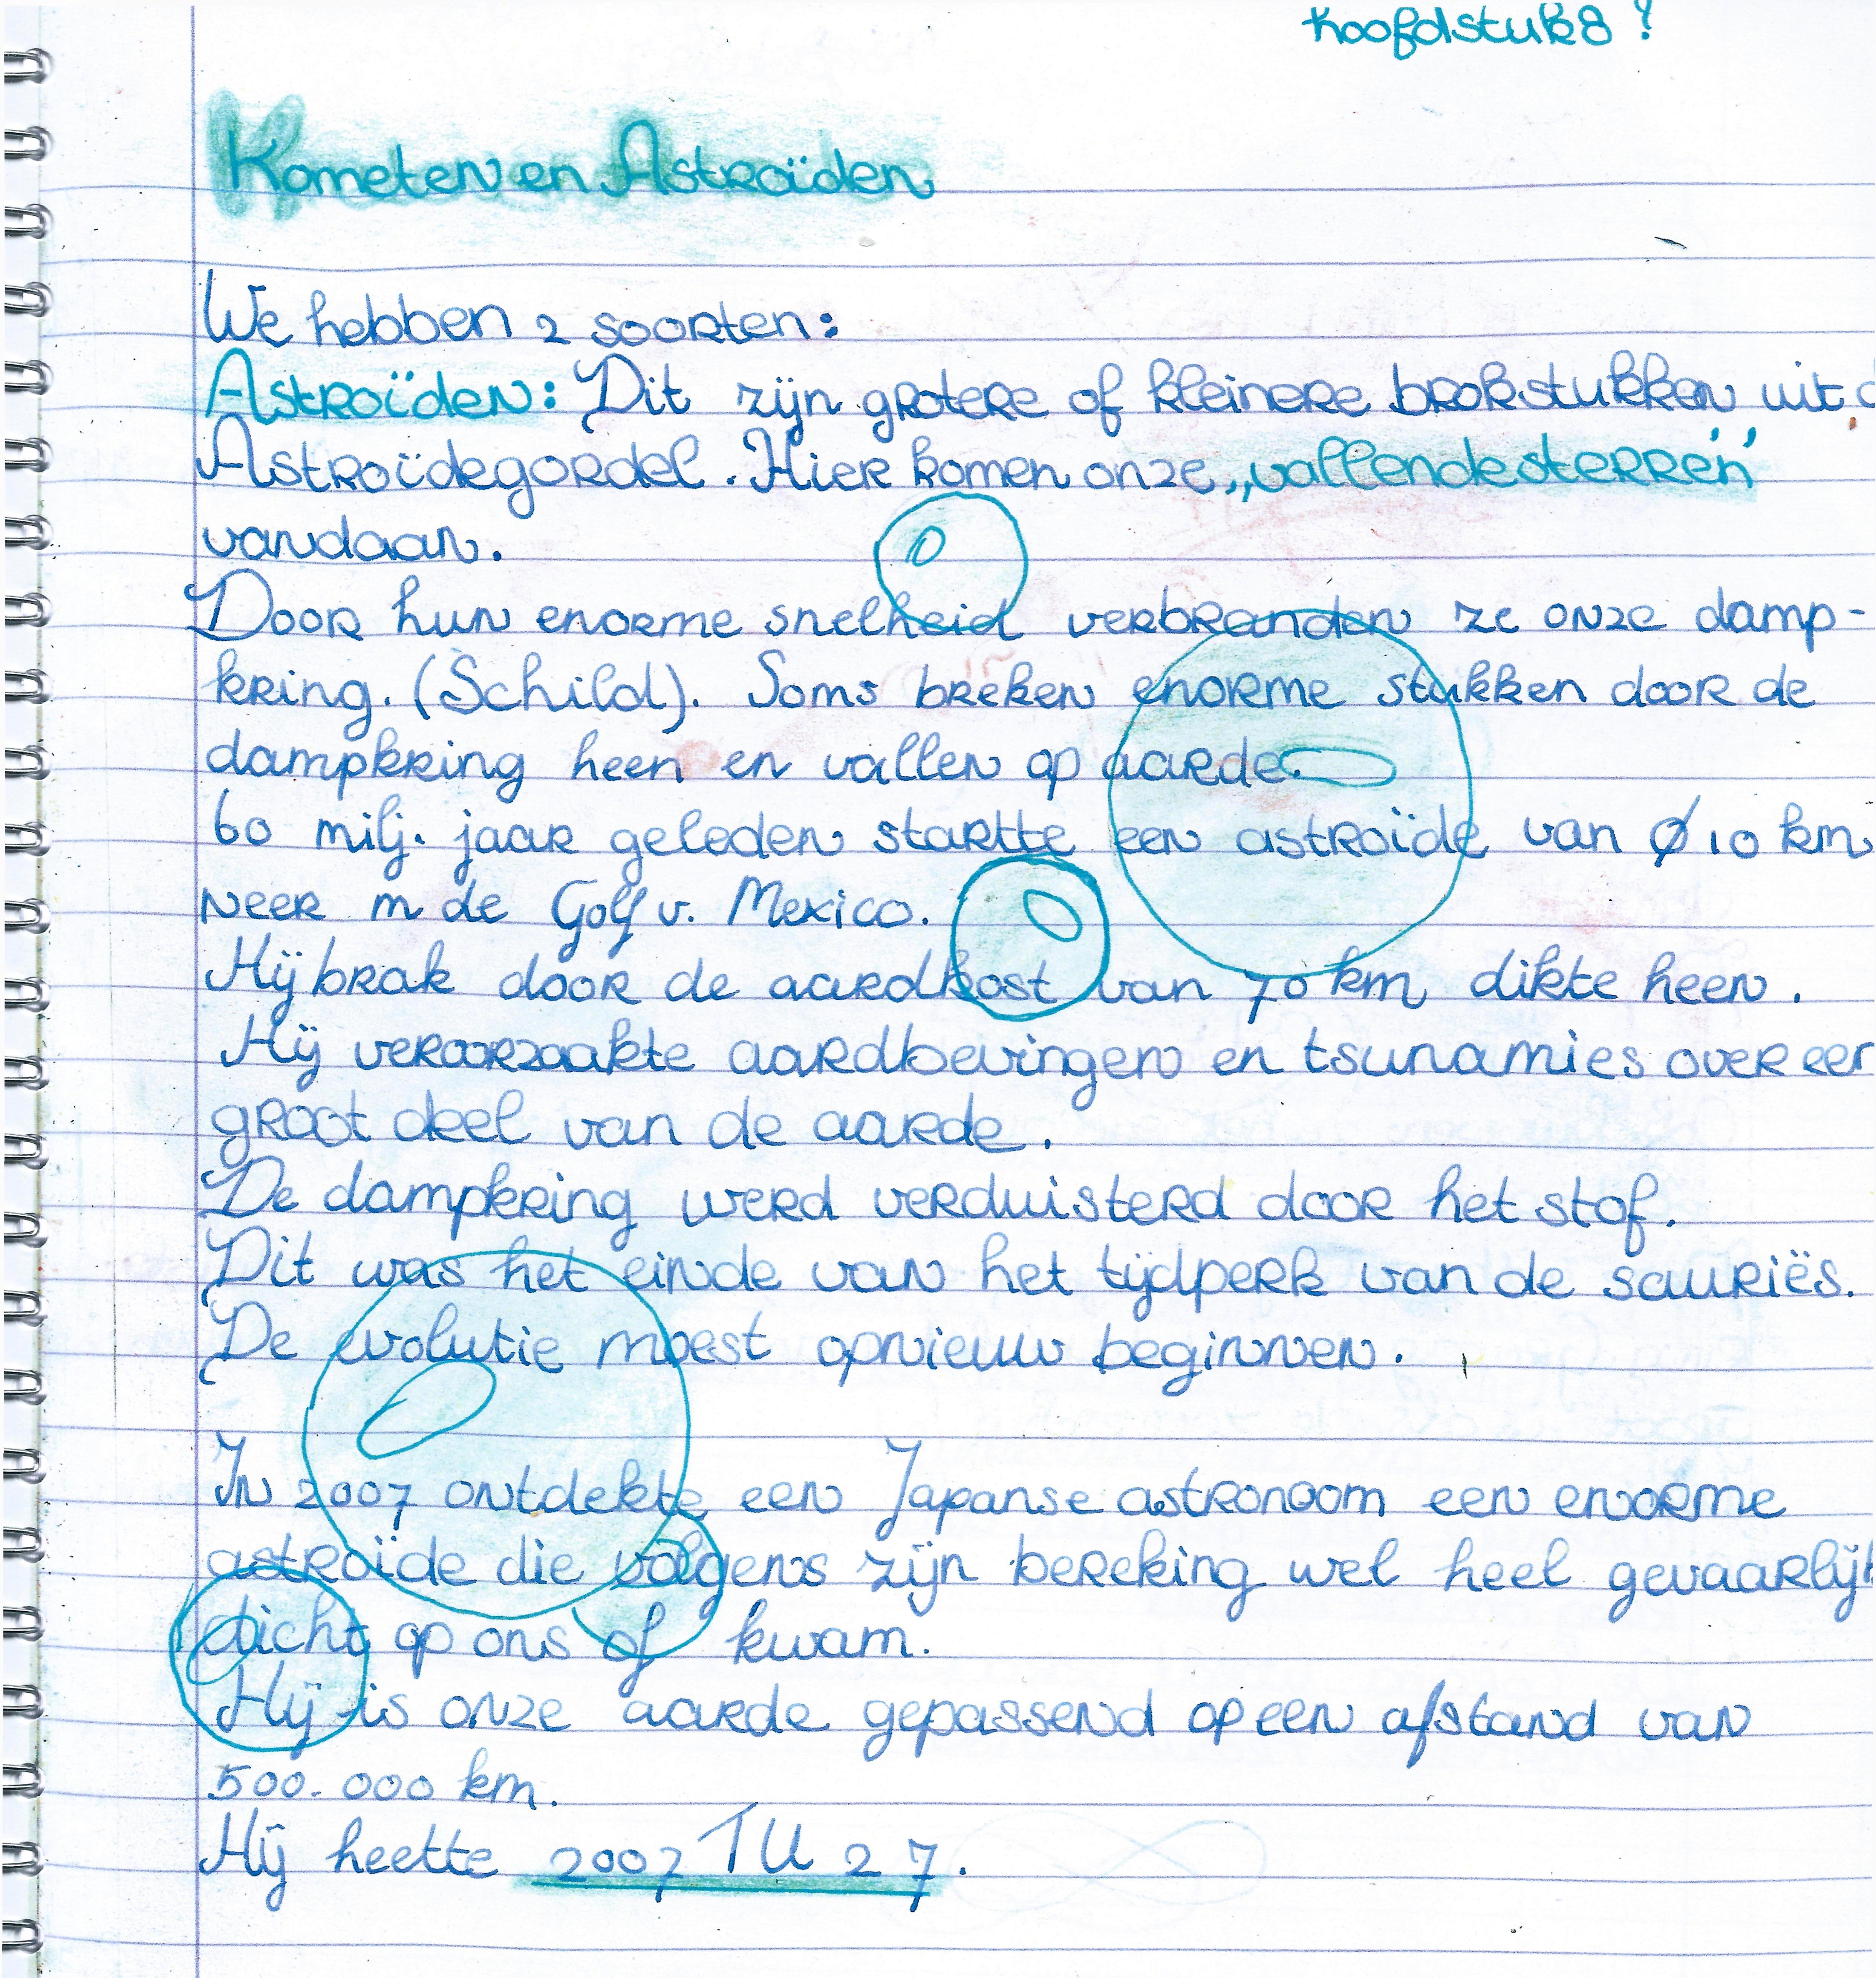 Hoofdstuk 8 !
Kometen en Astroïden
We hebben 2 soorten:
Astroïden: Dit zijn grotere of kleinere brokstukken uit d
Astroïdegordel. Hier komen onze „vallende sterren”
vandaan.
Door hun enorme snelheid verbranden ze onze damp-
kring. (Schild). Soms breken enorme stukken door de
dampkring heen en vallen op aarde.
60 milj. jaar geleden startte een astroïde van Ø 10 km
neer in de Golf v. Mexico.
Hij brak door de aardkost van 70 km dikte heen.
Hij veroorzaakte aardbevingen en tsunamies over een
groot deel van de aarde.
De dampkring werd verduisterd door het stof.
Dit was het einde van het tijdperk van de sauriës.
De evolutie moest opnieuw beginnen.
In 2007 ontdekte een Japanse astronoom een enorme
astroïde die volgens zijn bereking wel heel gevaarlijk
dicht op ons of kwam.
Hij is onze aarde gepassend op een afstand van
500.000 km.
Hij heette 2007 TU 27.